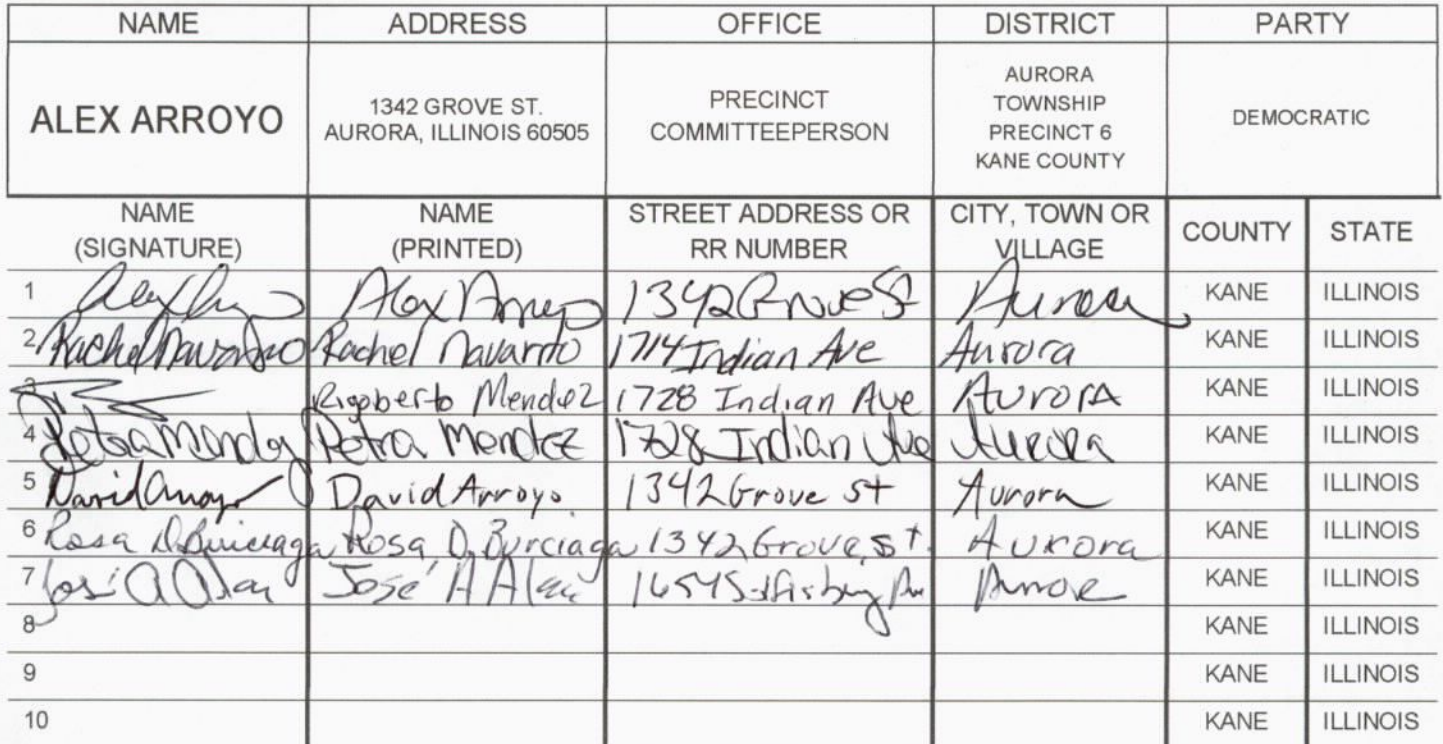 NAME ADDRESS OFFICE DISTRICT PARTY
ALEX ARROYO 1342 GROVE ST. AURORA, ILLINOIS 60505 PRECINCT COMMITTEEPERSON AURORA TOWNSHIP PRECINCT 6 KANE COUNTY DEMOCRATIC
NAME (SIGNATURE) NAME (PRINTED) STREET ADDRESS OR RR NUMBER CITY, TOWN OR VILLAGE COUNTY STATE
1 Alex Arroyo 1342 Grove St Aurora KANE ILLINOIS
2 Rachel Navarro Rachel Navarro 1714 Indian Ave Aurora KANE ILLINOIS
3 Rigoberto Mendez 1728 Indian Ave Aurora KANE ILLINOIS
4 Petra Mendez Petra Mendez 1728 Indian Ave Aurora KANE ILLINOIS
5 David Arroyo David Arroyo 1342 Grove St Aurora KANE ILLINOIS
6 Rosa D. Burciaga Rosa D. Burciaga 1342 Grove, st. Aurora KANE ILLINOIS
7 José A José A 1654 Aurora KANE ILLINOIS
8 KANE ILLINOIS
9 KANE ILLINOIS
10 KANE ILLINOIS